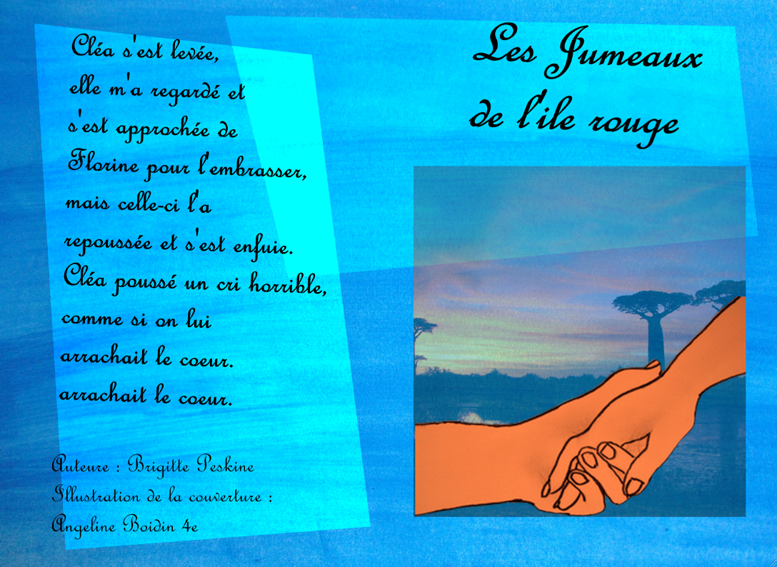 Cléa s'est levée,
elle m'a regardé et
s'est approchée de
Florine pour l'embrasser,
mais celle-ci l'a
repoussée et s'est enfuie.
Cléa poussé un cri horrible,
comme si on lui
arrachait le coeur.
arrachait le coeur.
Auteure : Brigitte Peskine
Illustration de la couverture :
Angeline Boidin 4e
Les Jumeaux
de l'ile rouge